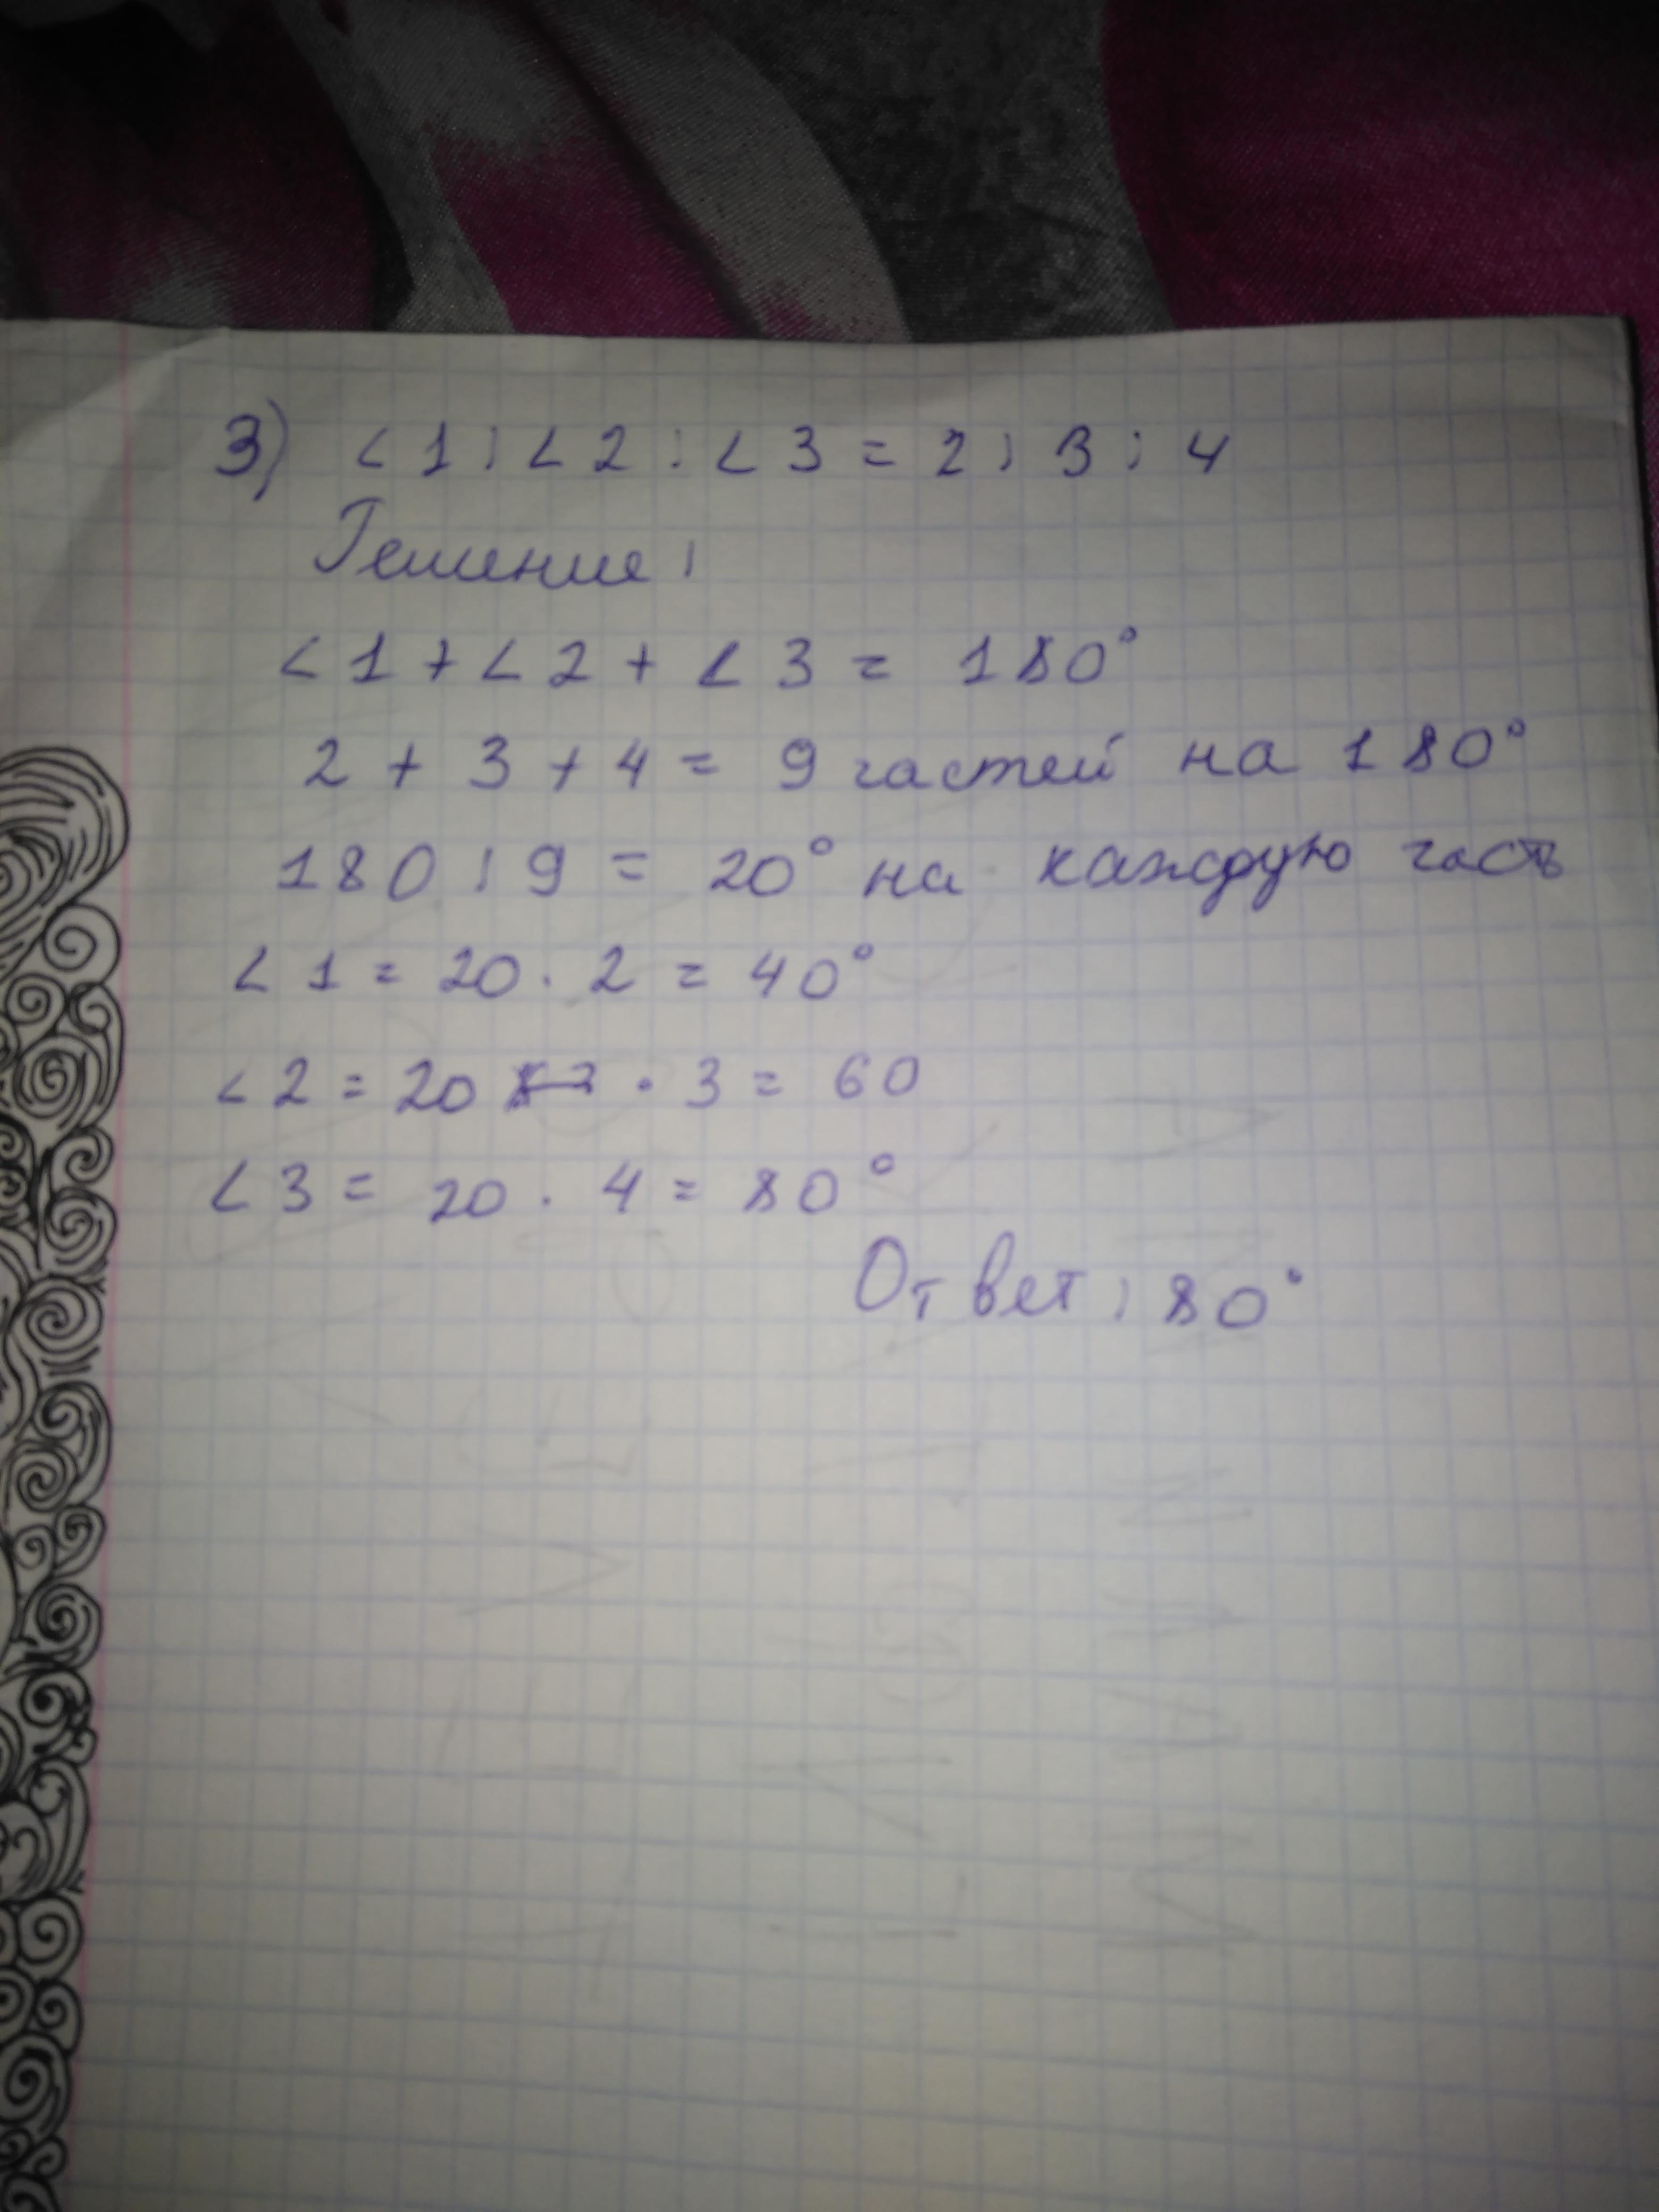 3) ∠1 : ∠2 : ∠3 = 2 : 3 : 4
Решение:
∠1 + ∠2 + ∠3 = 180°
2 + 3 + 4 = 9 частей на 180°
180 : 9 = 20° на каждую часть
∠1 = 20 · 2 = 40°
∠2 = 20 · 3 = 60
∠3 = 20 · 4 = 80°
Ответ: 80°